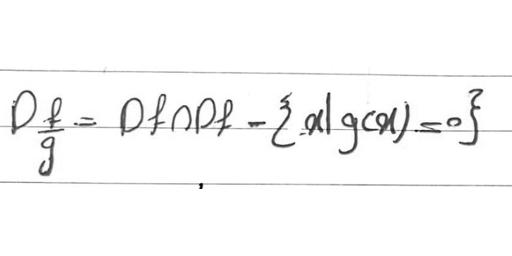 D f/g = Df∩Df - {x | g(x) = 0}